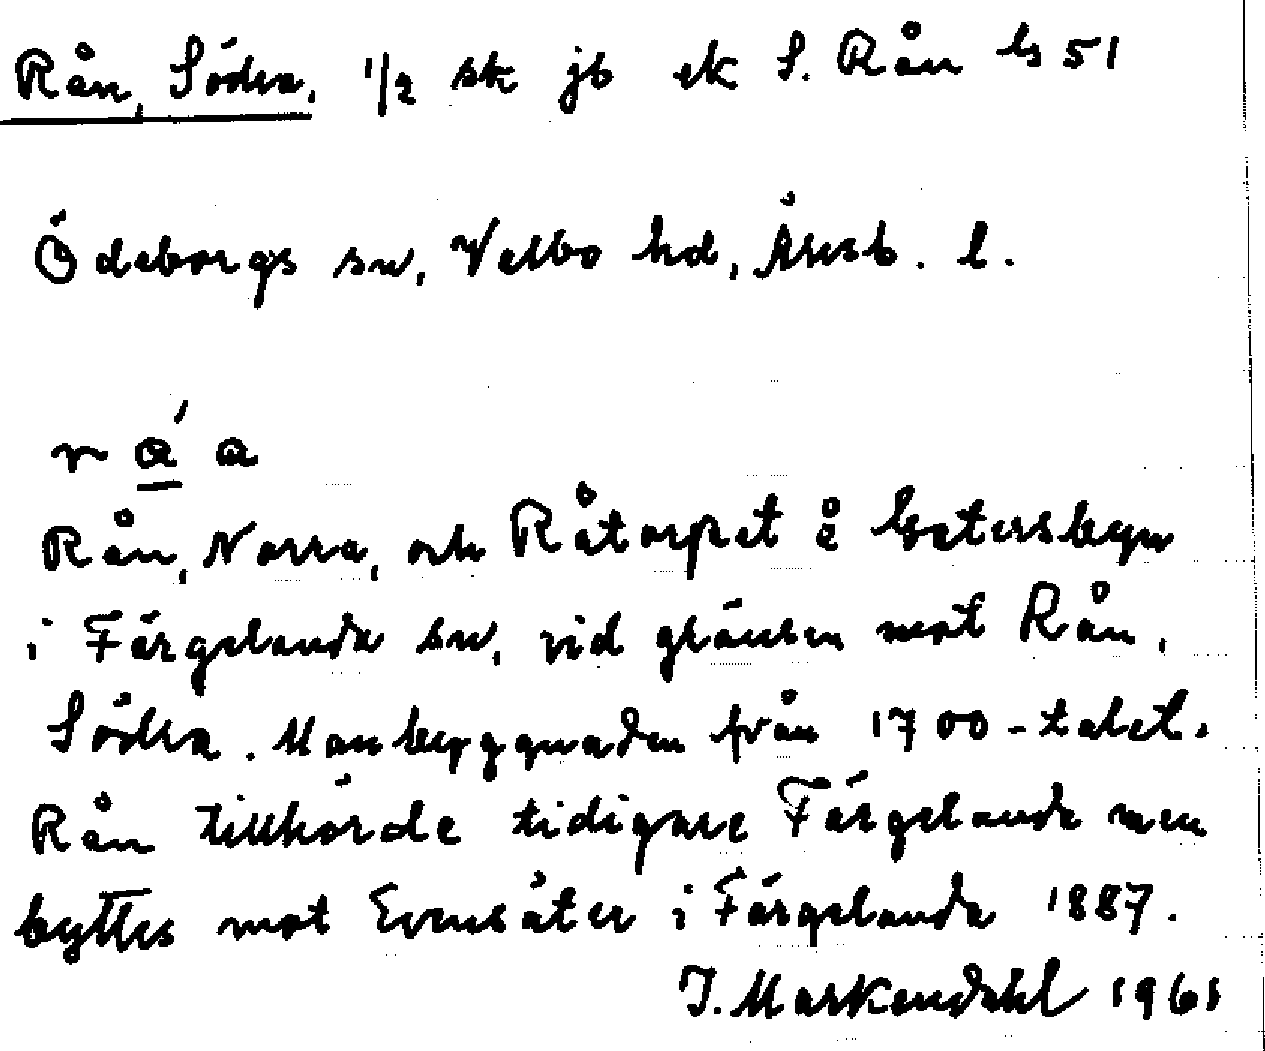 Rån, Södra, 1/2 sk jb ek S. Rån ls 51
Ödeborgs sn, Valbo hd, Älvsb. l.
r á a
Rån, Norra, och Råtorpet å Gatersbyn
i Färgelanda sn, vid gränsen mot Rån,
Södra. Manbyggnaden från 1700-talet.
Rån tillhörde tidigare Färgelanda men
byttes mot Evensäter i Färgelanda 1887.
J. Markendahl 1961